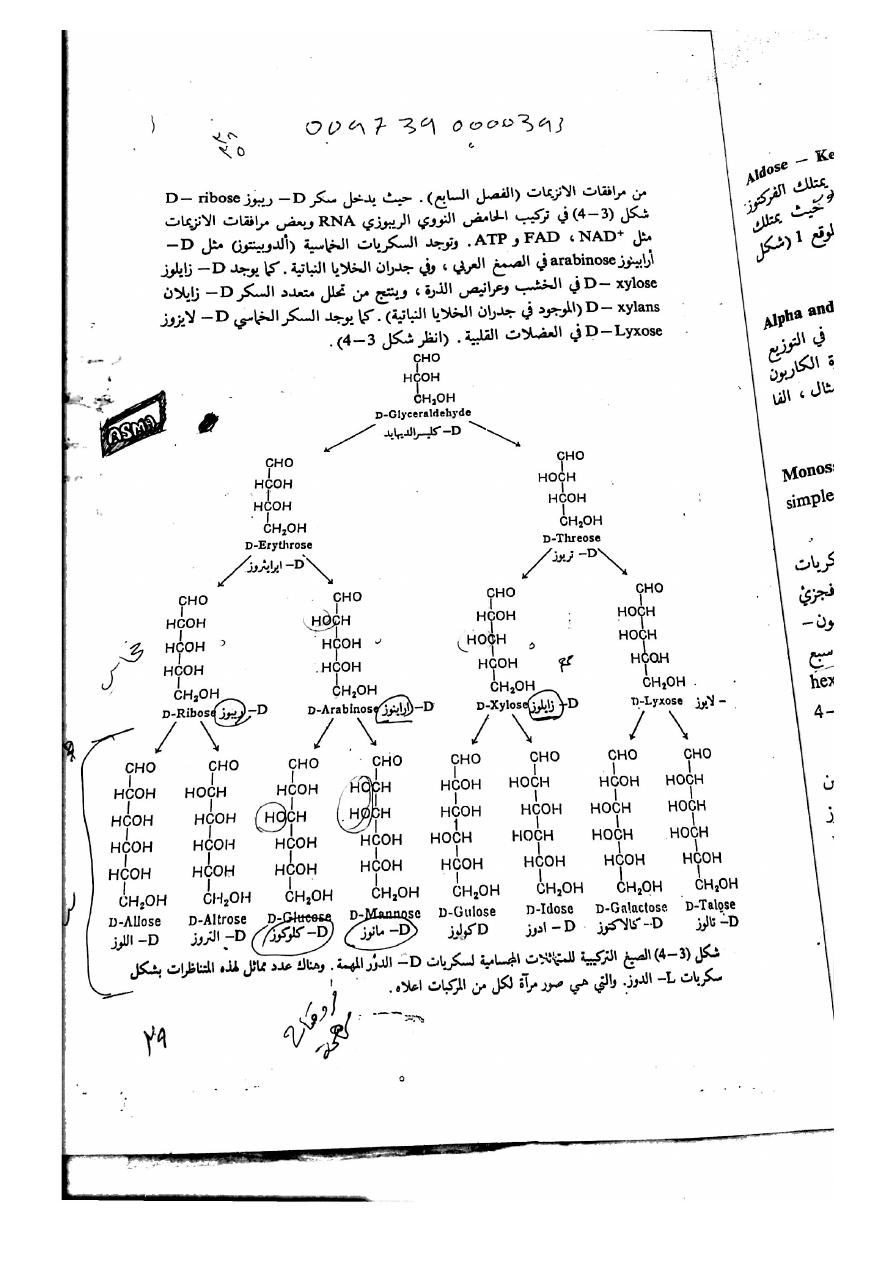 009739 0000393
من مرافقات الانزيمات (الفصل السابع). حيث يدخل سكر D– ريبوز D– ribose
شكل (3–4) في تركيب الحامض النووي الريبوزي RNA وبعض مرافقات الانزيمات
مثل NAD⁺ ، FAD و ATP. وتوجد السكريات الخماسية (ألدوبينتوز) مثل D–
أرابينوز arabinose في الصمغ العربي ، وفي جدران الخلايا النباتية. كما يوجد D– زايلوز
D– xylose في الخشب وعرانيص الذرة ، وينتج من تحلل متعدد السكر D– زايلان
D– xylans (الموجود في جدران الخلايا النباتية). كما يوجد السكر الخماسي D– لايزوز
D–Lyxose في العضلات القلبية. (انظر شكل 3–4).
CHO
HCOH
CH₂OH
D-Glyceraldehyde
D– كليسرالديهايد
ASMA
CHO
HCOH
HCOH
CH₂OH
D-Erythrose
D– ايرايثروز
CHO
HOCH
HCOH
CH₂OH
D-Threose
D– ثريوز
CHO
HCOH
HCOH
HCOH
CH₂OH
D-Ribose ريبوز –D
CHO
HOCH
HCOH
HCOH
CH₂OH
D-Arabinose ارابنوز –D
CHO
HCOH
HOCH
HCOH
CH₂OH
D-Xylose زايلوز –D
CHO
HOCH
HOCH
HCOH
CH₂OH
D-Lyxose لايوز –
CHO
HCOH
HCOH
HCOH
HCOH
CH₂OH
D-Allose
D– اللوز
CHO
HOCH
HCOH
HCOH
HCOH
CH₂OH
D-Altrose
D– التروز
CHO
HCOH
HOCH
HCOH
HCOH
CH₂OH
D-Glucose
D– كلوكوز
CHO
HOCH
HOCH
HCOH
HCOH
CH₂OH
D-Mannose
D– مانوز
CHO
HCOH
HCOH
HOCH
HCOH
CH₂OH
D-Gulose
D كولوز
CHO
HOCH
HCOH
HOCH
HCOH
CH₂OH
D-Idose
D – ادوز
CHO
HCOH
HOCH
HOCH
HCOH
CH₂OH
D-Galactose
D– كالاكتوز
CHO
HOCH
HOCH
HOCH
HCOH
CH₂OH
D-Talose
D– تالوز
شكل (3–4) الصيغ التركيبية للمتماثلات المجسامية لسكريات D– الدوز المهمة. وهناك عدد مماثل لهذه المتناظرات بشكل
سكريات L– الدوز. والتي هي صور مرآة لكل من المركبات اعلاه.
٣٩
Aldose – Ke
يمتلك الفركتوز
حيث يمتلك
لموقع 1 (شكل
Alpha and
في التوزيع
ة الكاربون
مثال ، الفا
Monos
simple
كريات
فجزيْ
ون–
سبع
hex
4–